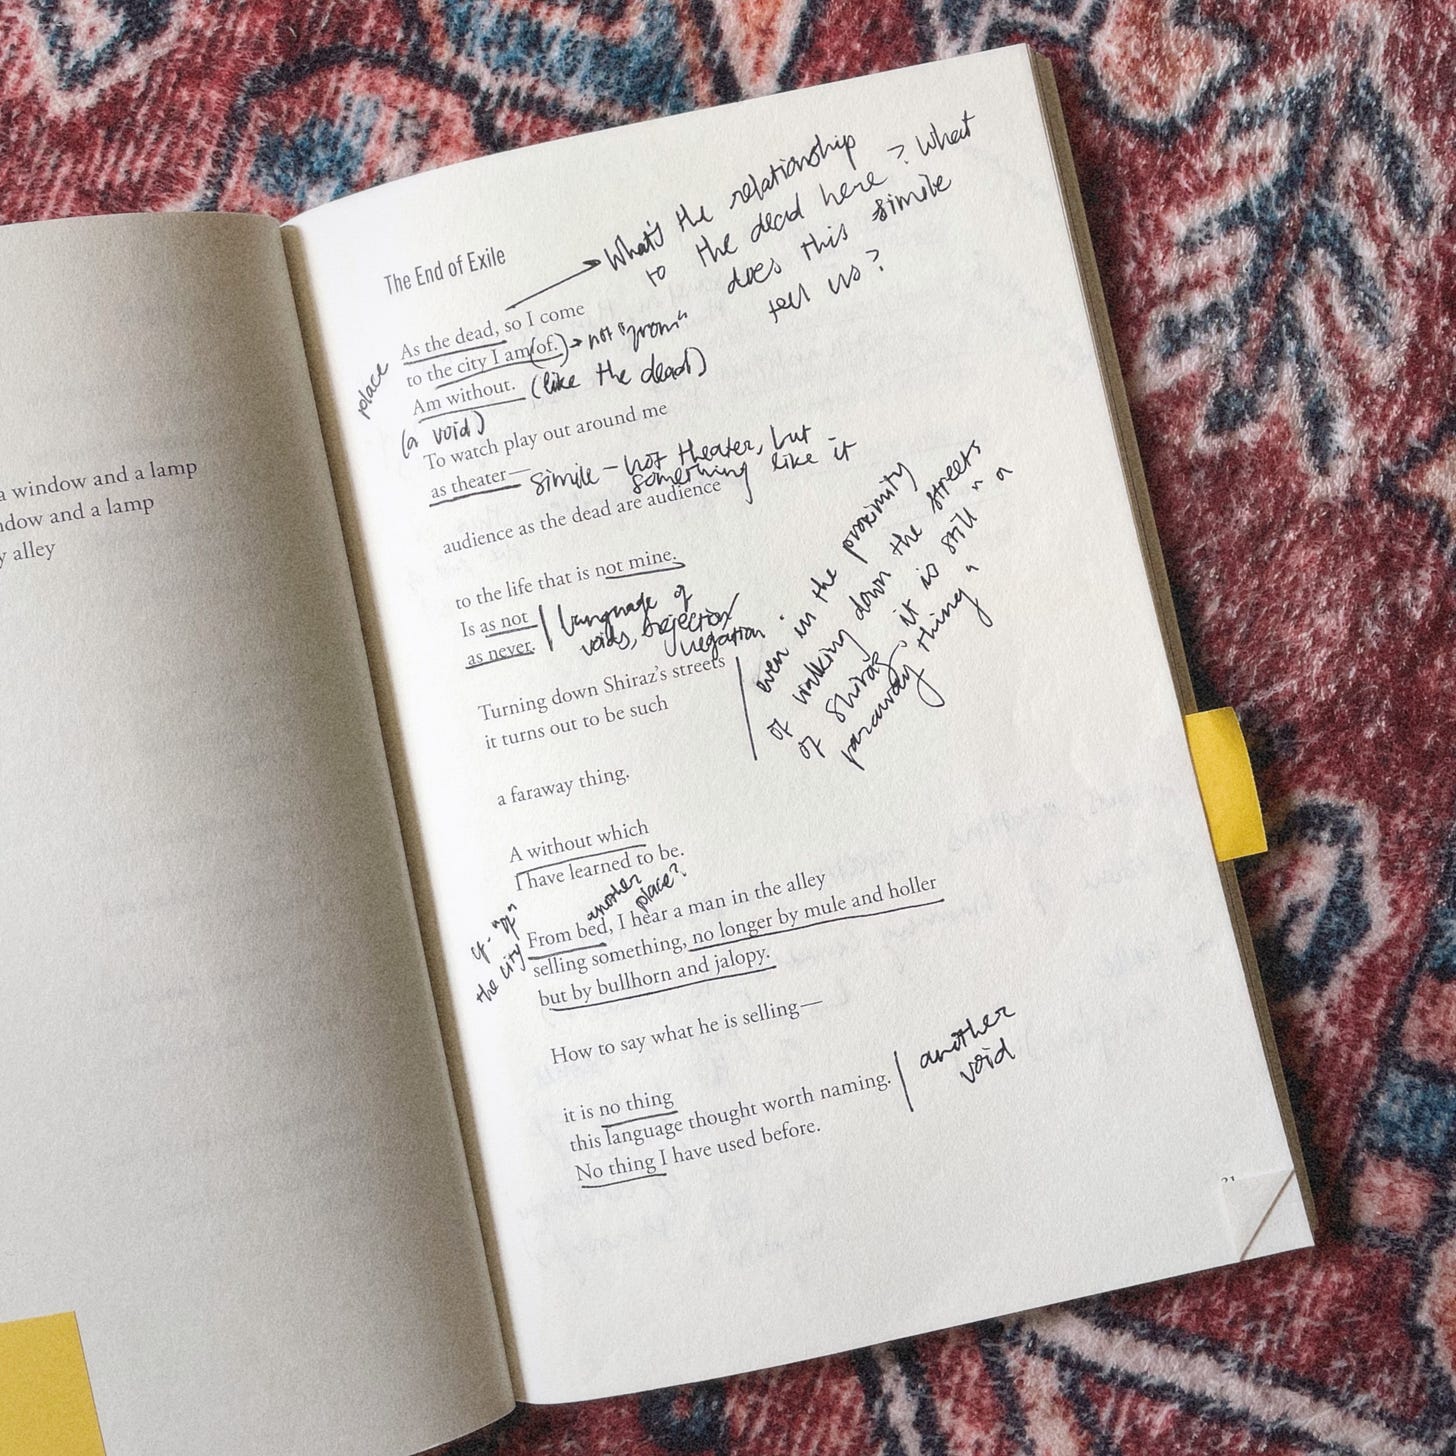 a window and a lamp
ndow and a lamp
y alley
The End of Exile
What's the relationship
to the dead here? What
does this simile
tell us?
As the dead, so I come
to the city I am (of.) → not "from"
place
Am without. (like the dead)
(a void)
To watch play out around me
as theater— simile – not theater, but
something like it
audience as the dead are audience
to the life that is not mine.
Is as not
as never.
language of
voids,
negation
Turning down Shiraz's streets
it turns out to be such
even in the proximity
of walking down the streets
of Shiraz, it is still "a
faraway thing"
a faraway thing.
A without which
I have learned to be.
another
place?
cf. "of"
the city
From bed, I hear a man in the alley
selling something, no longer by mule and holler
but by bullhorn and jalopy.
How to say what he is selling—
it is no thing
this language thought worth naming.
another
void
No thing I have used before.